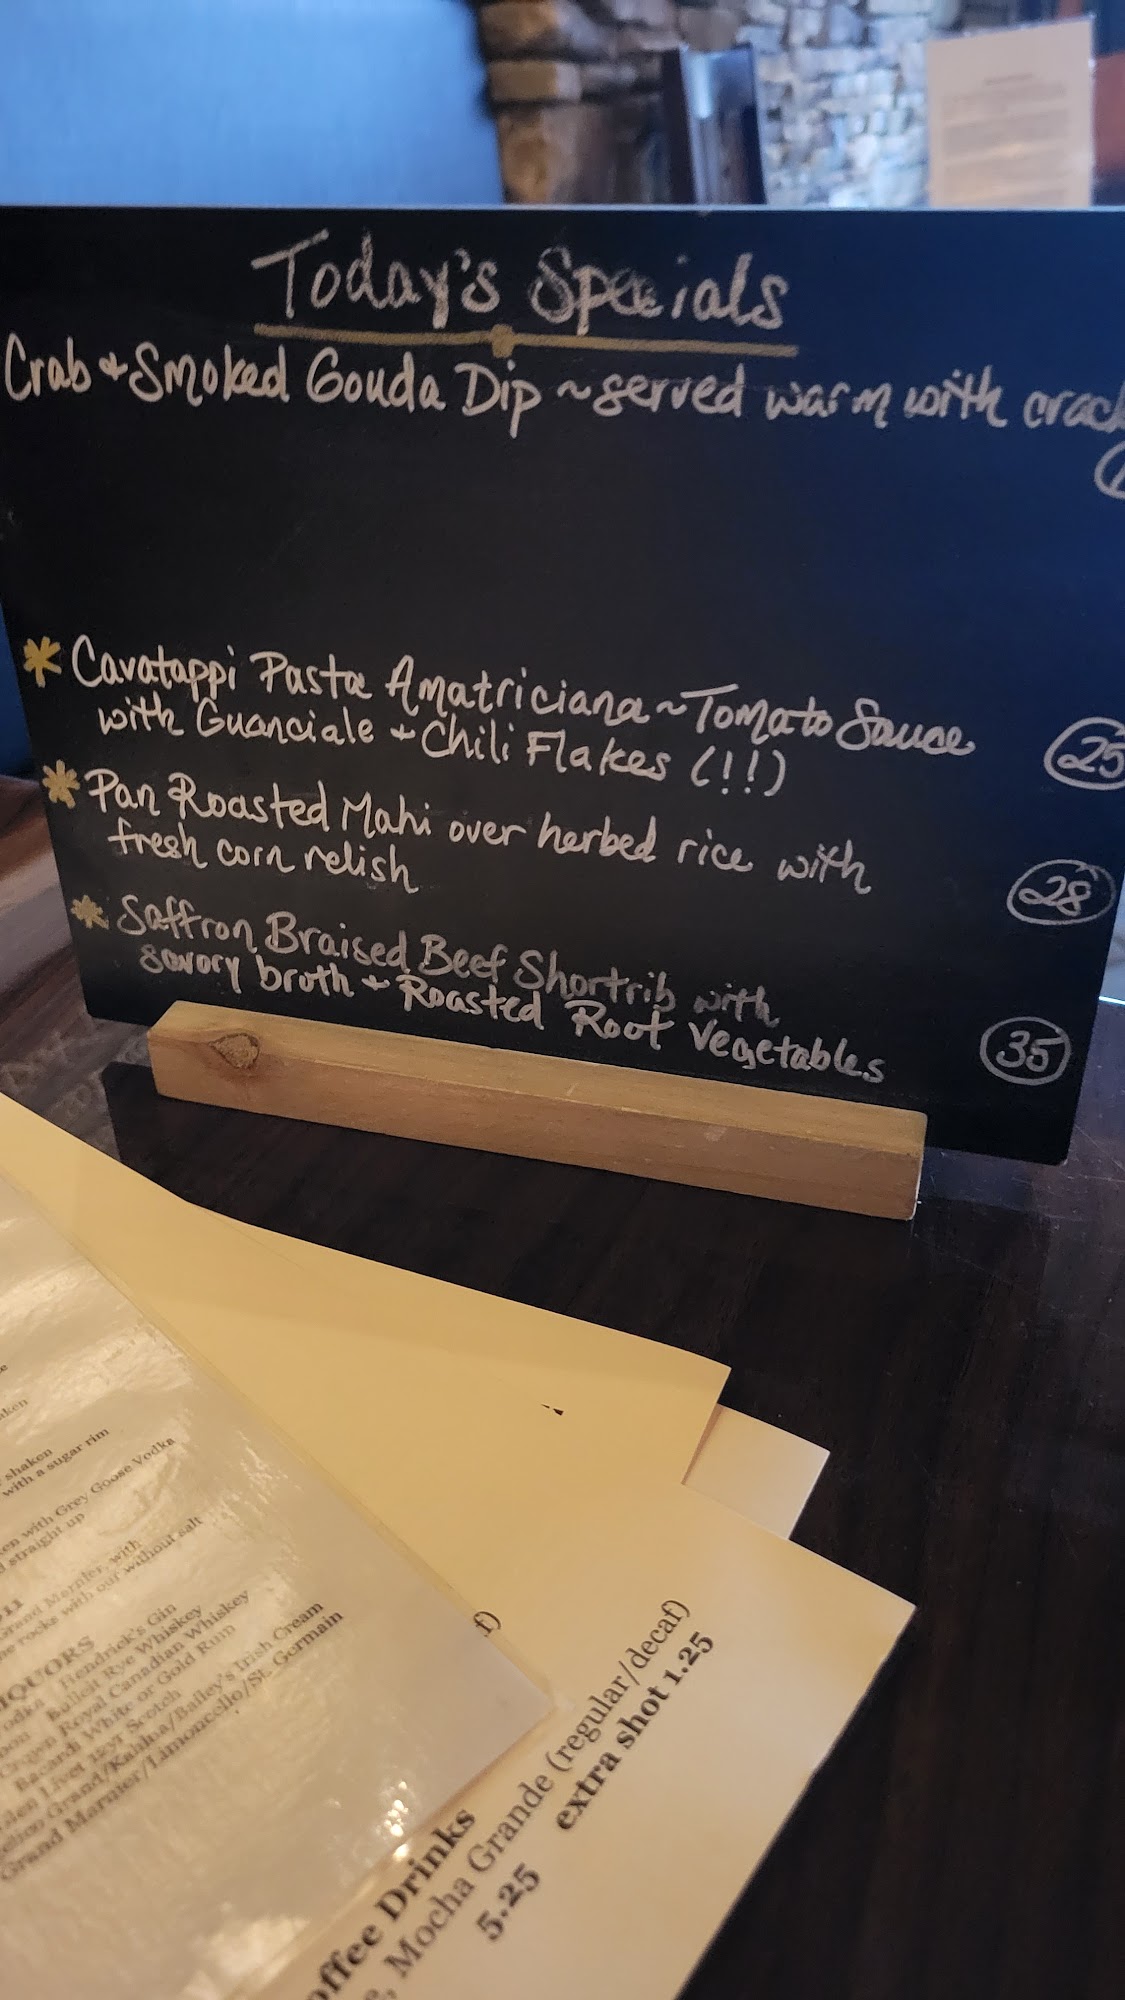 Today's Specials
Crab + Smoked Gouda Dip ~ served warm with crack
* Cavatappi Pasta Amatriciana ~ Tomato Sauce
with Guanciale + Chili Flakes (!!)
25
* Pan Roasted Mahi over herbed rice with
fresh corn relish
28
* Saffron Braised Beef Shortrib with
savory broth + Roasted Root Vegetables
35
shaken
with a sugar rim
with Grey Goose Vodka
straight up
Grand Marnier, with
rocks with our without salt
Hendrick's Gin
Bulleit Rye Whiskey
Royal Canadian Whiskey
Bacardi White or Gold Rum
Livet 12yr Scotch
Grand/Kahlua/Bailey's Irish Cream
Grand Marnier/Limoncello/St. Germain
f)
offee Drinks
, Mocha Grande (regular/decaf)
5.25 extra shot 1.25